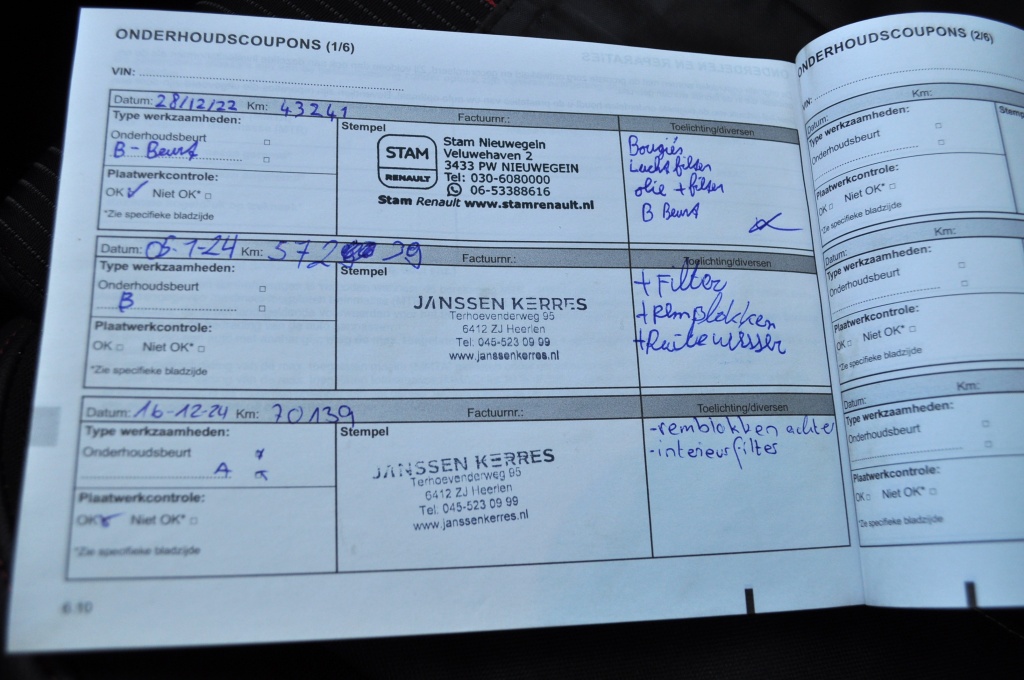 ONDERHOUDSCOUPONS (1/6)
VIN:
Datum: 28/12/22 Km: 43241 Factuurnr.: Toelichting/diversen
Type werkzaamheden:
Onderhoudsbeurt
B - Beurt
Plaatwerkcontrole:
OK Niet OK*
*Zie specifieke bladzijde
Stempel
STAM
RENAULT
Stam Nieuwegein
Veluwehaven 2
3433 PW NIEUWEGEIN
Tel: 030-6080000
06-53388616
Stam Renault www.stamrenault.nl
Bougiés
Luchtfilter
olie + filter
B Beurt
Datum: 05-1-24 Km: 572 39 Factuurnr.: Toelichting/diversen
Type werkzaamheden:
Onderhoudsbeurt
B
Plaatwerkcontrole:
OK Niet OK*
*Zie specifieke bladzijde
Stempel
JANSSEN KERRES
Terhoevenderweg 95
6412 ZJ Heerlen
Tel: 045-523 09 99
www.janssenkerres.nl
+ Filter
+ Remblokken
+ Ruitewisser
Datum: 16-12-24 Km: 70139 Factuurnr.: Toelichting/diversen
Type werkzaamheden:
Onderhoudsbeurt
A
Plaatwerkcontrole:
OK Niet OK*
*Zie specifieke bladzijde
Stempel
JANSSEN KERRES
Terhoevenderweg 95
6412 ZJ Heerlen
Tel. 045-523 09 99
www.janssenkerres.nl
- remblokken achter
- interieurfilter
6.10
ONDERHOUDSCOUPONS (2/6)
VIN:
Datum: Km:
Type werkzaamheden:
Onderhoudsbeurt
Plaatwerkcontrole:
OK Niet OK*
*Zie specifieke bladzijde
Datum: Km:
Type werkzaamheden:
Onderhoudsbeurt
Plaatwerkcontrole:
OK Niet OK*
*Zie specifieke bladzijde
Datum: Km:
Type werkzaamheden:
Onderhoudsbeurt
Plaatwerkcontrole:
OK Niet OK*
*Zie specifieke bladzijde